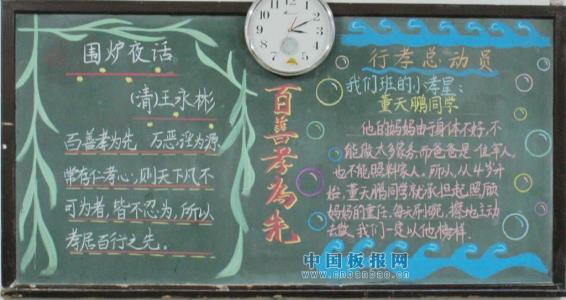 围炉夜话
(清)王永彬
百善孝为先 万恶淫为源
常存仁孝心,则天下凡不
可为者,皆不忍为,所以
孝居百行之先。
百善孝为先
行孝总动员
我们班的小孝星:
董天鹏同学
他的妈妈由于身体不好,不
能做太多家务,而爸爸是一位军人,
也不能照料家人。所以,从4岁开
始,董天鹏同学就承担起照顾
妈妈的重任。每天刷碗、擦地主动
去做。我们一定以他为榜样。
中国板报网
www.cnbanbao.cn